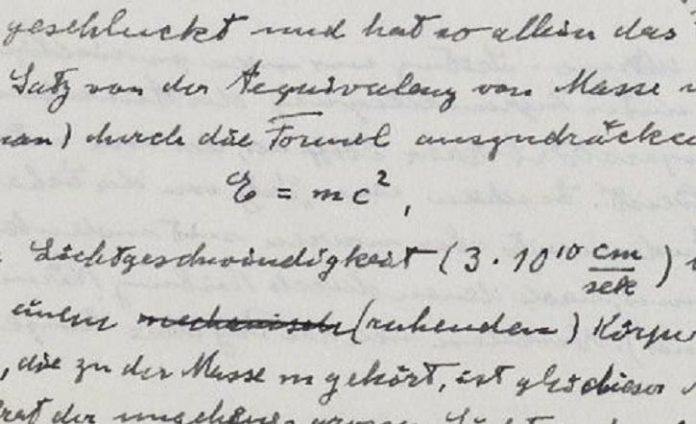 geschluckt und hat so allein das
Satz von der Aequivalenz von Masse u
man) durch die Formel auszudrücken
E = mc²,
Lichtgeschwindigkeit (3 · 10¹⁰ cm/sek)
einem mechanisch (ruhenden) Körper
, die zu der Masse m gehört, ist gleich dieser
der ungeheuer grossen